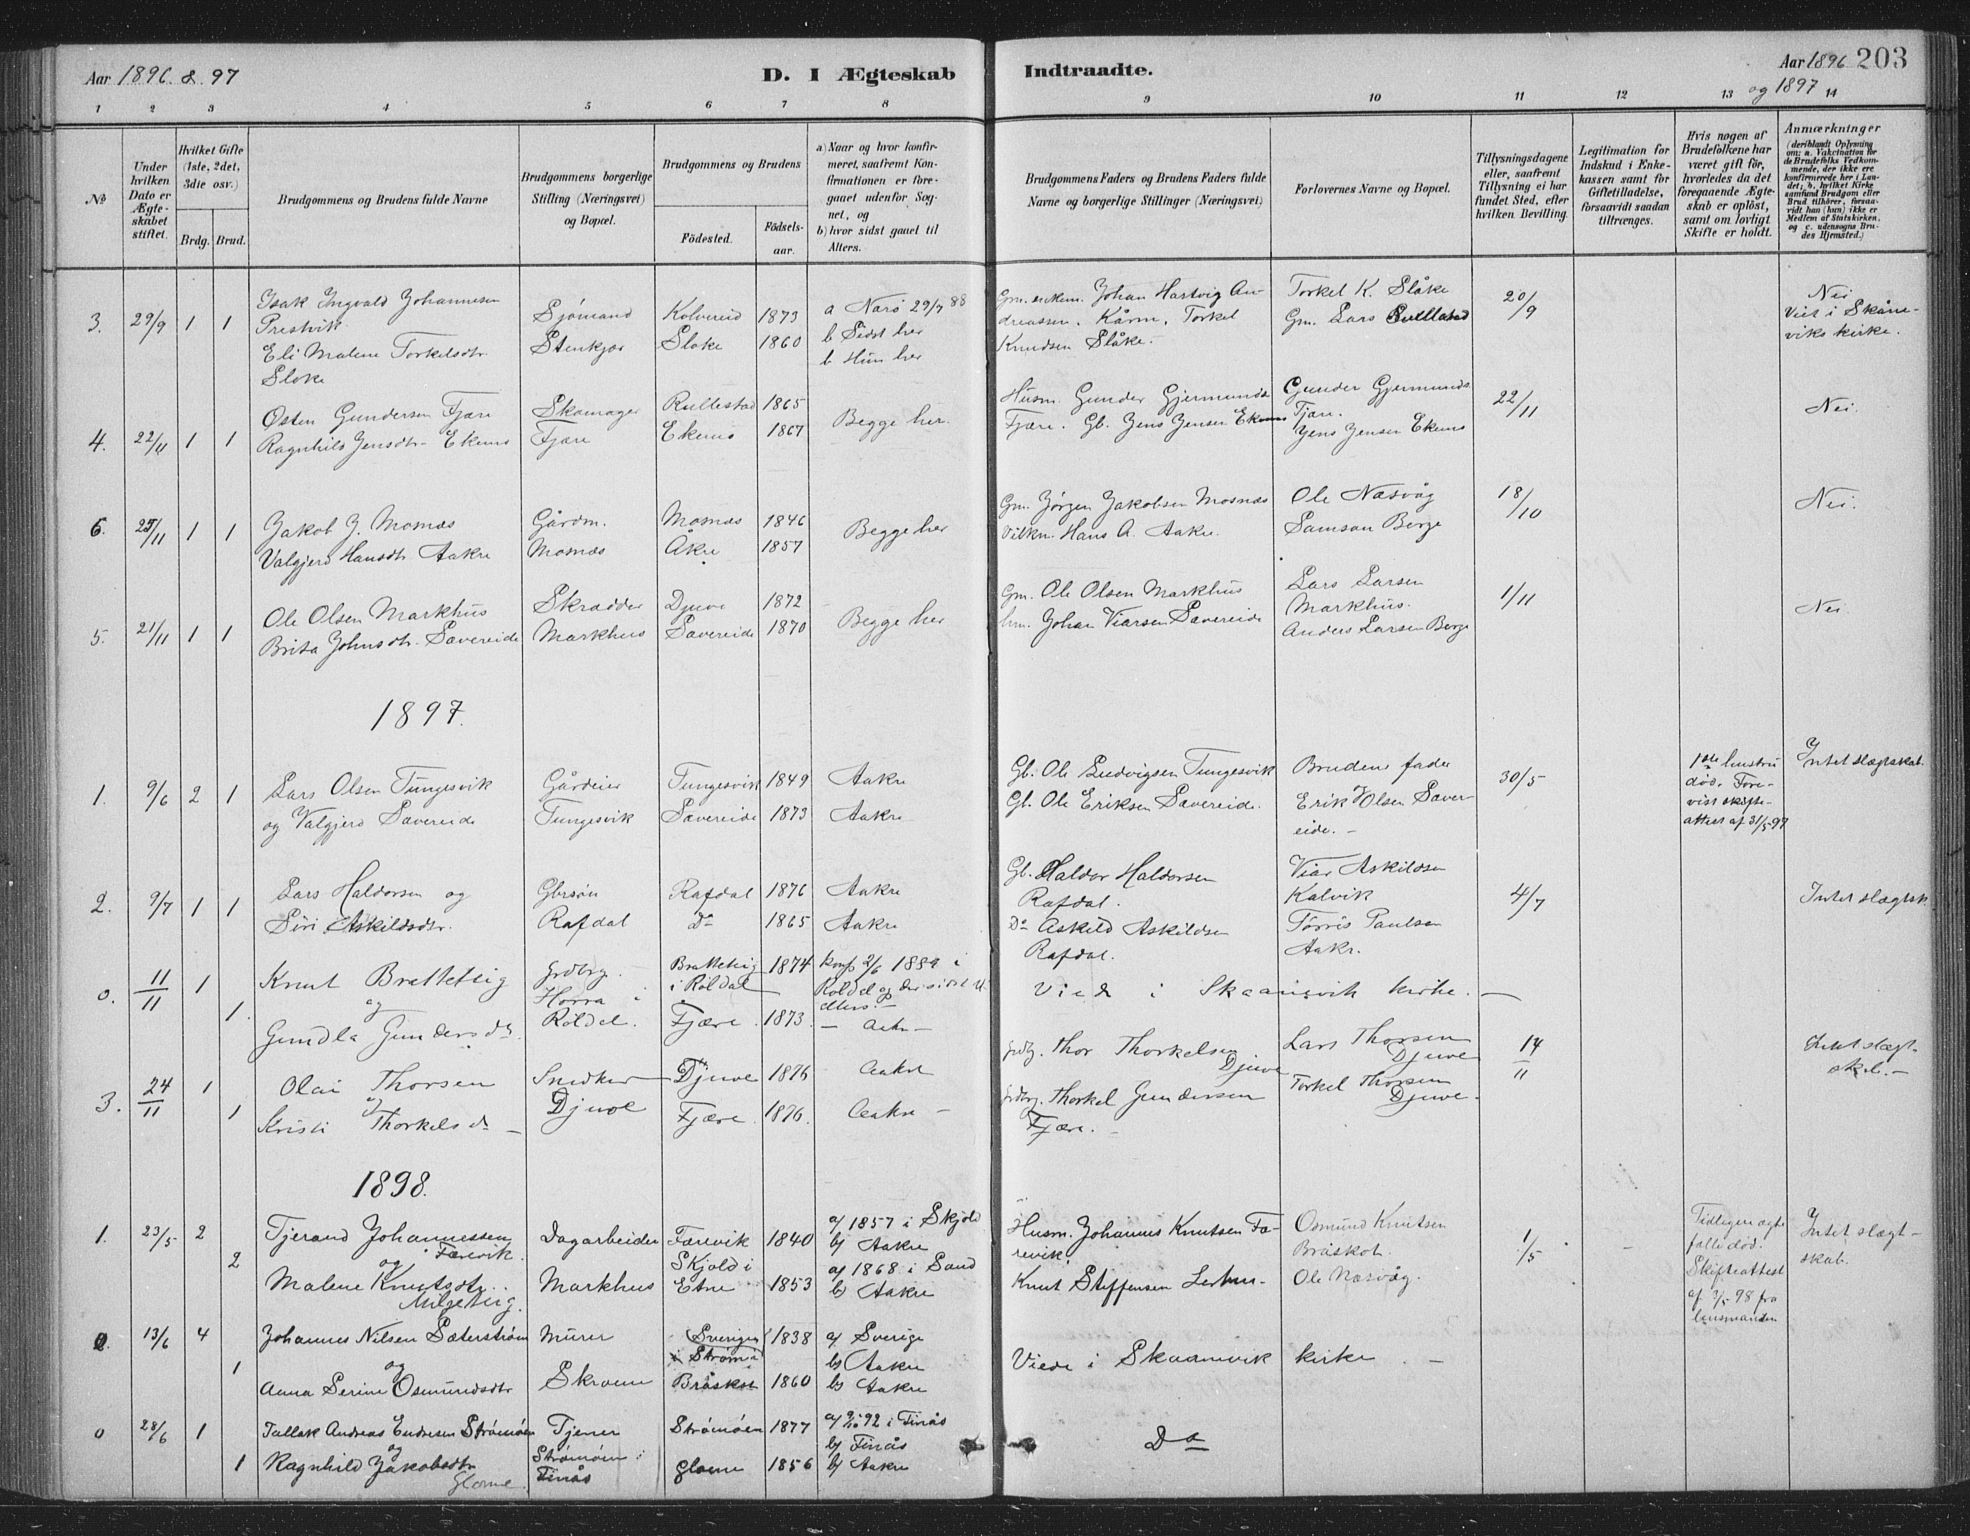 Aar 1896 & 97
D. I Ægteskab
Indtraadte.
Aar 1896 203
og 1897
1 2 3 4 5 6 7 8 9 10 11 12 13 14
№
Under hvilken Dato er Ægteskabet stiftet.
Hvilket Gifte (1ste, 2det, 3die osv.)
Brdg. Brud.
Brudgommens og Brudens fulde Navne
Brudgommens borgerlige Stilling (Næringsvei) og Bopæl.
Brudgommens og Brudens
Fødested.
Fødselsaar.
a) Naar og hvor konfirmeret, saafremt Konfirmationen er foregaaet udenfor Sognet, og
b) hvor sidst gaaet til Alters.
Brudgommens Faders og Brudens Faders fulde Navne og borgerlige Stillinger (Næringsvei)
Forlovernes Navne og Bopæl.
Tillysningsdagene eller, saafremt Tillysning ei har fundet Sted, efter hvilken Bevilling.
Legitimation for Indskud i Enkekassen samt for Giftetilladelse, forsaavidt saadan tiltrænges.
Hvis nogen af Brudefolkene har været gift før, hvorledes da det foregaaende Ægteskab er opløst, samt om lovligt Skifte er holdt.
Anmærkninger
(deriblandt Oplysning om: a. Vakcination for de Brudefolks Vedkommende, der ikke ere konfirmerede her i Landet; b. hvilket Kirkesamfund Brudgom eller Brud tilhører, forsaavidt han (hun) ikke er Medlem af Statskirken, og c. udensogns Brudes Hjemsted.)
3. 29/9 1 1
Isak Ingvald Johannesen
Prestvik
Eli Malene Torkelsdtr
Sloke
Sjømand
Stenkjær
Kolvereid 1873
Sloke 1860
a Narö 29/7 88
b Sidst her
b Hun her
Johan Hartvig An-
dreassen. Kårm. Torkel
Knudsen Slåke.
Torkel K. Slåke
Gm. Lars
20/9
Nei
Viet i Skåne-
viks kirke.
4. 22/11 1 1
Østen Gundersen Fjære
Ragnhild Jensdtr Ekenes
Skomager
Fjære
Rullestad 1865
Ekenes 1867
Begge her.
Husm. Gunder Gjermunds.
Fjære. Gb. Jens Jensen Ekenes
Gunder Gjermunds.
Fjære.
Jens Jensen Ekenes
22/11
Nei.
6. 25/11 1 1
Jakob J. Mosnæs
Valgjerd Hansdtr Aakre
Gårdm.
Mosnæs
Mosnæs 1846
Åkre 1857
Begge her
Gm. Jørgen Jakobsen Mosnæs
Hans A. Aakre.
Ole Næsvåg
Samson Berge
18/10
Nei.
5. 21/11 1 1
Ole Olsen Markhus
Brita Johnsdtr. Sævereide
Skrædder
Markhus
Djuve 1872
Sævereide 1870
Begge her
Gm. Ole Olsen Markhus
Johan Viarsen Sævereide
Lars Larsen
Markhus.
Anders Larsen Berge
1/11
Nei.
1897.
1. 9/6 2 1
Lars Olsen Tungesvik
og Valgjerd Sævereide
Gårdeier
Tungesvik
Tungesvik 1849
Sævereide 1873
Aakre
Aakre
Gb. Ole Ludvigsen Tungesvik
Gb. Ole Eriksen Sævereide.
Brudens fader
Erik Olsen Sæver-
eide. -
30/5
1ste hustru
død. Fore-
vist skifte-
attest af 31/5-97
Intet slægtskab.
2. 9/7 1 1
Lars Haldorsen og
Siri Askildsdtr.
Gbrsøn
Rafdal
Rafdal 1876
Do 1865
Aakre
Aakre
Gb. Haldor Haldorsen
Rafdal.
Do Askild Askildsen
Rafdal.
Viar Askildsen
Kalvik
Tørris Paulsen
Aakre.
4/7
Intet slægtsk.
o. 11/11 1 1
Knut Bratteteig
og
Gundla Gundersdtr.
Grdbrg.
Horra i
Röldal.
Bratteteig 1874
i Röldal
Fjære. 1873.
konf 2/6 1889 i
Röldal og der sidst til
alters. -
- Aakre -
Vied i Skaanevik kirke. -
3. 24/11 1 1
Olai Thorsen
og
Kristi Thorkelsdr -
Snedker
Djuve
Djuve 1876
Fjære. 1876.
Aakre
Aakre -
Grdbg. Thor Thorkelsen
Djuve
Grdbrg. Thorkel Gundersen
Fjære. -
Lars Thorsen
Djuve
Torkel Thorsen
Djuve.
14/11
Intet slægt-
skab. -
1898.
1. 23/5 2 2
Tjerand Johannessen
og Færevik.
Malene Knutsdtr.
Milgeteig.
Dagarbeider
Markhus
Færevik 1840
Skjold i
Etne 1853
a/ 1857 i Skjold
b/ Aakre
a/ 1868 i Sand
b/ Aakre
Husm. Johannes Knutsen Fæ-
revik.
Knut Steffensen
Osmund Knutsen
Bråskot.
Ole Næsvåg.
1/5
-
Tidligere ægte-
falle død.
Skifteattest
af 3/5-98 fra
lensmanden
Intet slægt-
skab.
13/6 4 1
Johannes Nilsen Sæterstrøm
og
Anna Serine Osmundsdtr
Murer
Skroene
Sverige 1838
Bråskot 1860
a/ Sverige
b/ Aakre
b/ Aakre
Viede i Skaanevik kirke. -
o 28/6 1 1
Tallak Andreas Endresen Strømøen
og
Ragnhild Jakobsdtr
Gloene.
Tjener
Strømøen i
Finås
Strømøen 1877
Gloene 1856
a/ 9/10 92 i Finås
b/ Finås
b/ Aakre
Do